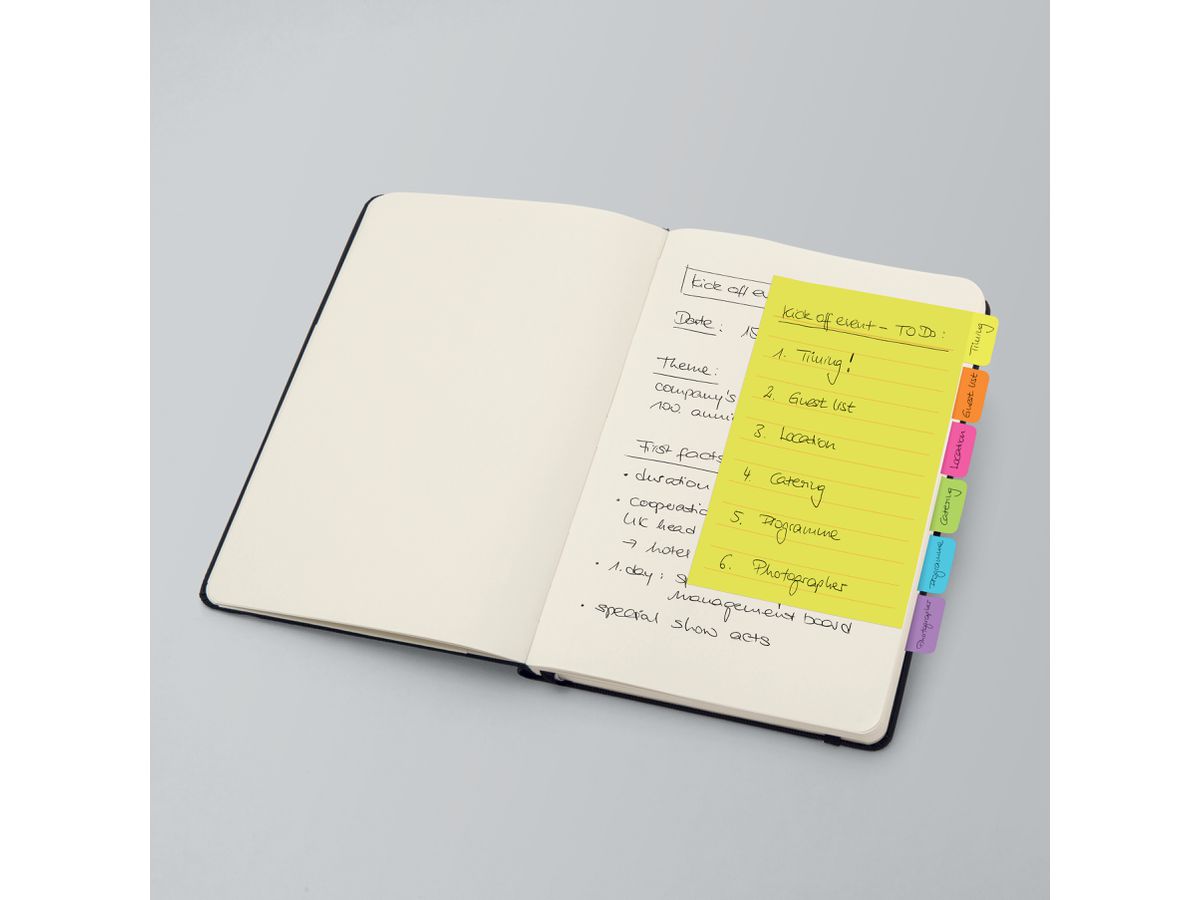 Kick off ev
Date: 15
Theme:
company's
100. anni
First facts
• duration
• cooperatio
UK head
→ hotel
• 1. day: s
management board
• special show acts
Kick off event - TO DO:
1. Timing!
2. Guest list
3. Location
4. Catering
5. Programme
6. Photographer
Timing
Guest list
Location
Catering
Programme
Photographer